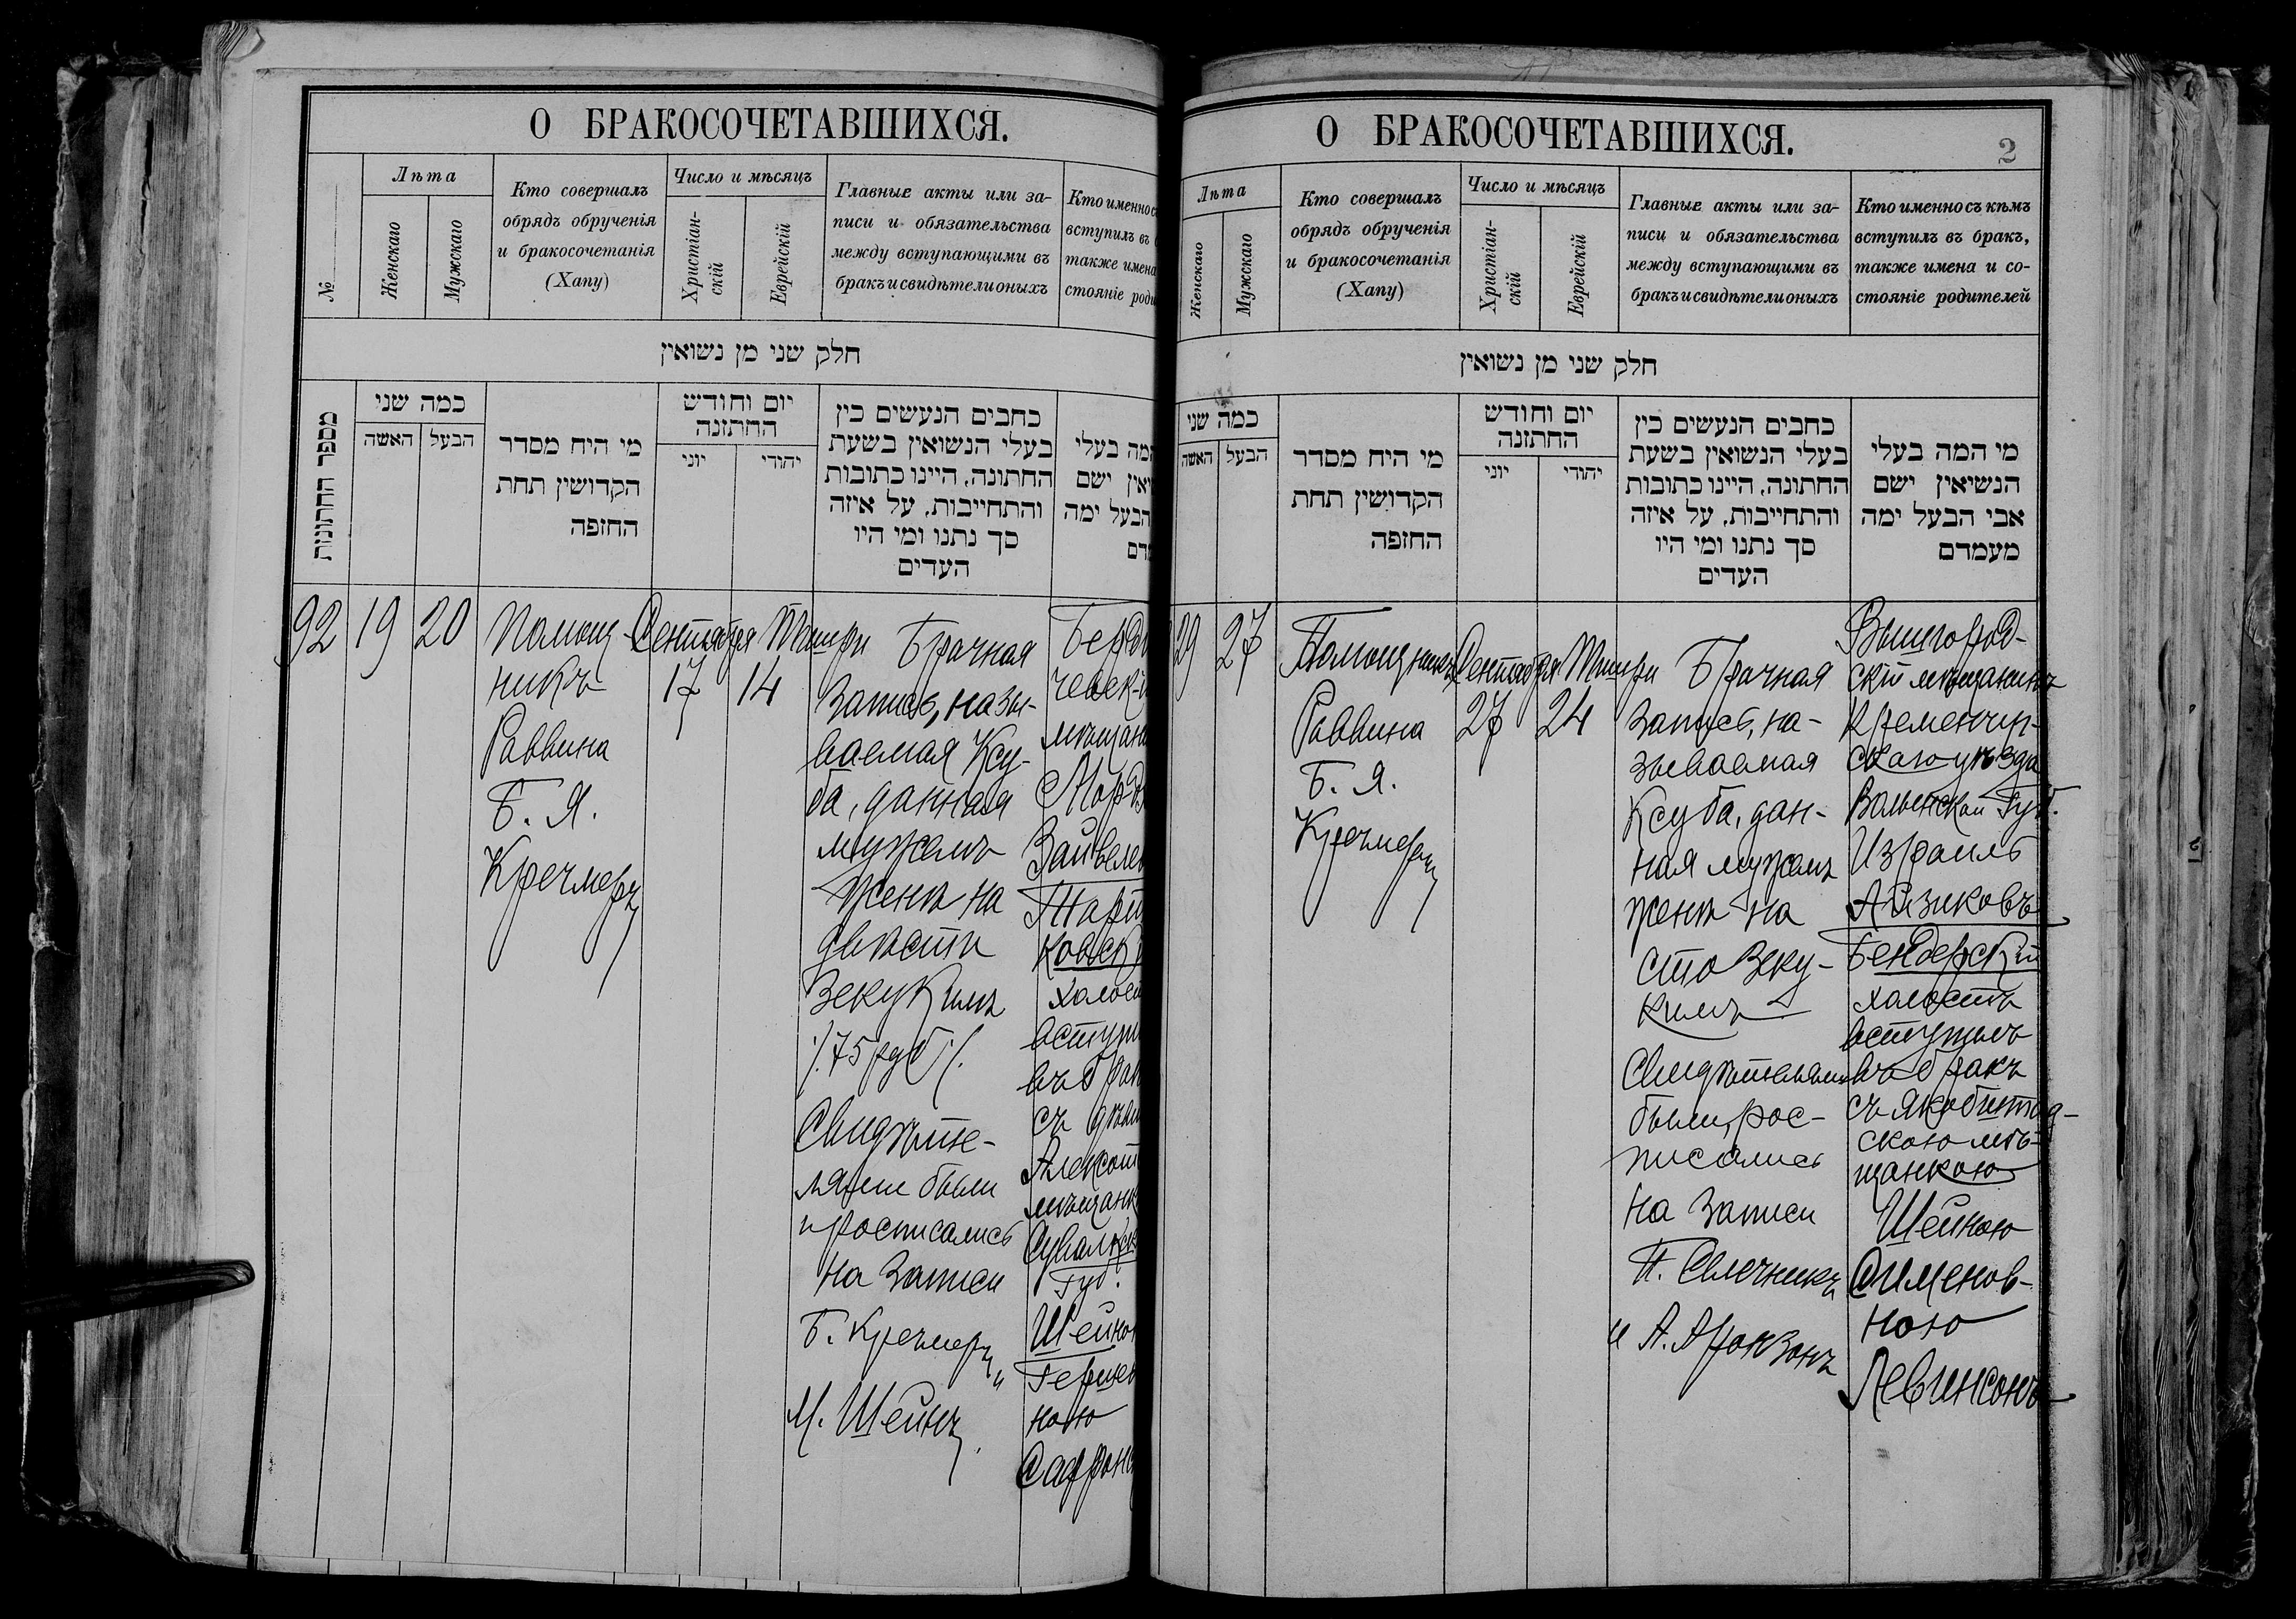 О БРАКОСОЧЕТАВШИХСЯ.
№
Лѣта
Женскаго
Мужскаго
Кто совершалъ
обрядъ обрученія
и бракосочетанія
(Хапу)
Число и мѣсяцъ
Христіан-
скій
Еврейскій
Главные акты или за-
писи и обязательства
между вступающими въ
бракъ и свидѣтели оныхъ
Кто именно с
вступилъ въ
также имена
стояніе роди
חלק שני מן נשואין
מספר החתונות
כמה שני
האשה
הבעל
מי היח מסדר
הקדושין תחת
החזפה
יום וחודש
החתזנה
יוני
יהודי
כחבים הנעשים כין
בעלי הנשואין בשעת
החתונה, היינו כתובות
והתחייבות, על איזה
סך נתנו ומי היו
העדים
המה בעלי
יאין ישם
הבעל ימה
92
19
20
Помощ-
никъ
Раввина
Б. Я.
Кречмеръ
Сентября
17
Тишри
14
Брачная
запись, назы-
ваемая Ксу-
ба, данная
мужемъ
женѣ на
двѣсти
Зекукимъ
/.75 руб/.
Свидѣте-
лями были
и росписались
на записи
Б. Кречмеръ и
М. Шейнъ.
Берди
човск
мѣщани
Морд
Зайвеле
Тарт
ковск
холост
вступи
въ брак
съ дѣви
Алексот
мѣщанк
Сувалкск
Губ.
Шейно
Гершев
ною
Сафронс
О БРАКОСОЧЕТАВШИХСЯ.
2
Лѣта
Женскаго
Мужскаго
Кто совершалъ
обрядъ обрученія
и бракосочетанія
(Хапу)
Число и мѣсяцъ
Христіан-
скій
Еврейскій
Главные акты или за-
писи и обязательства
между вступающими въ
бракъ и свидѣтели оныхъ
Кто именно съ кѣмъ
вступилъ въ бракъ,
также имена и со-
стояніе родителей
חלק שני מן נשואין
כמה שני
האשה
הבעל
מי היח מסדר
הקדושין תחת
החזפה
יום וחודש
החתזנה
יוני
יהודי
כחבים הנעשים כין
בעלי הנשואין בשעת
החתונה, היינו כתובות
והתחייבות, על איזה
סך נתנו ומי היו
העדים
מי המה בעלי
הנשיאין ישם
אבי הבעל ימה
מעמדם
29
27
Помощникъ
Раввина
Б. Я.
Кречмеръ
Сентября
27
Тишри
24
Брачная
запись, на-
зываемая
Ксуба, дан-
ная мужемъ
женѣ на
сто Зеку-
кимъ
Свидѣтелями
были, рос-
писались
на записи
П. Свечникъ
и А. Аронзонъ
Вышгород-
скій мѣщанинъ
Кременчи-
скаго уѣзда
Волынской Губ.
Израиль
Айзиковъ
Бендерскій
холостъ
вступилъ
въ бракъ
съ Якобштад-
скою мѣ-
щанкою
Шейною
Сименов-
ною
Левинсонъ